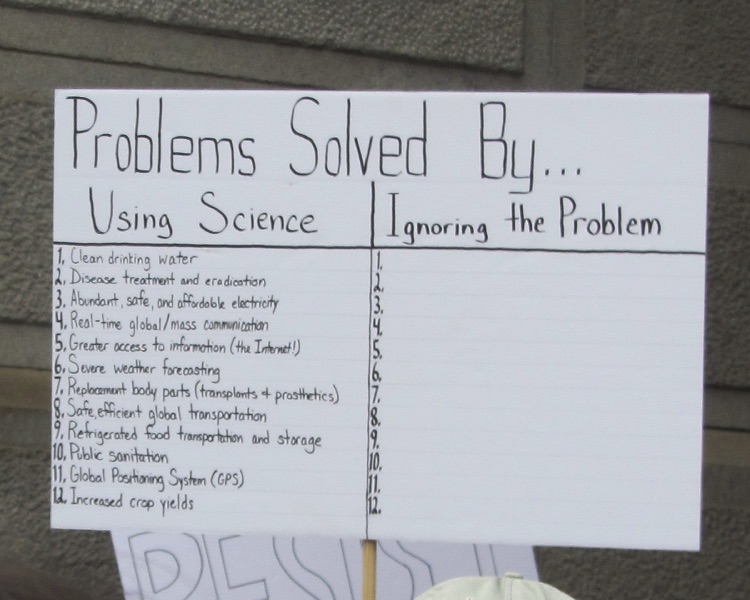 Problems Solved By...
Using Science
Ignoring the Problem
1. Clean drinking water
2. Disease treatment and eradication
3. Abundant, safe, and affordable electricity
4. Real-time global/mass communication
5. Greater access to information (the Internet!)
6. Severe weather forecasting
7. Replacement body parts (transplants & prosthetics)
8. Safe, efficient global transportation
9. Refrigerated food transportation and storage
10. Public sanitation
11. Global Positioning System (GPS)
12. Increased crop yields
1.
2.
3.
4.
5.
6.
7.
8.
9.
10.
11.
12.
RESIST